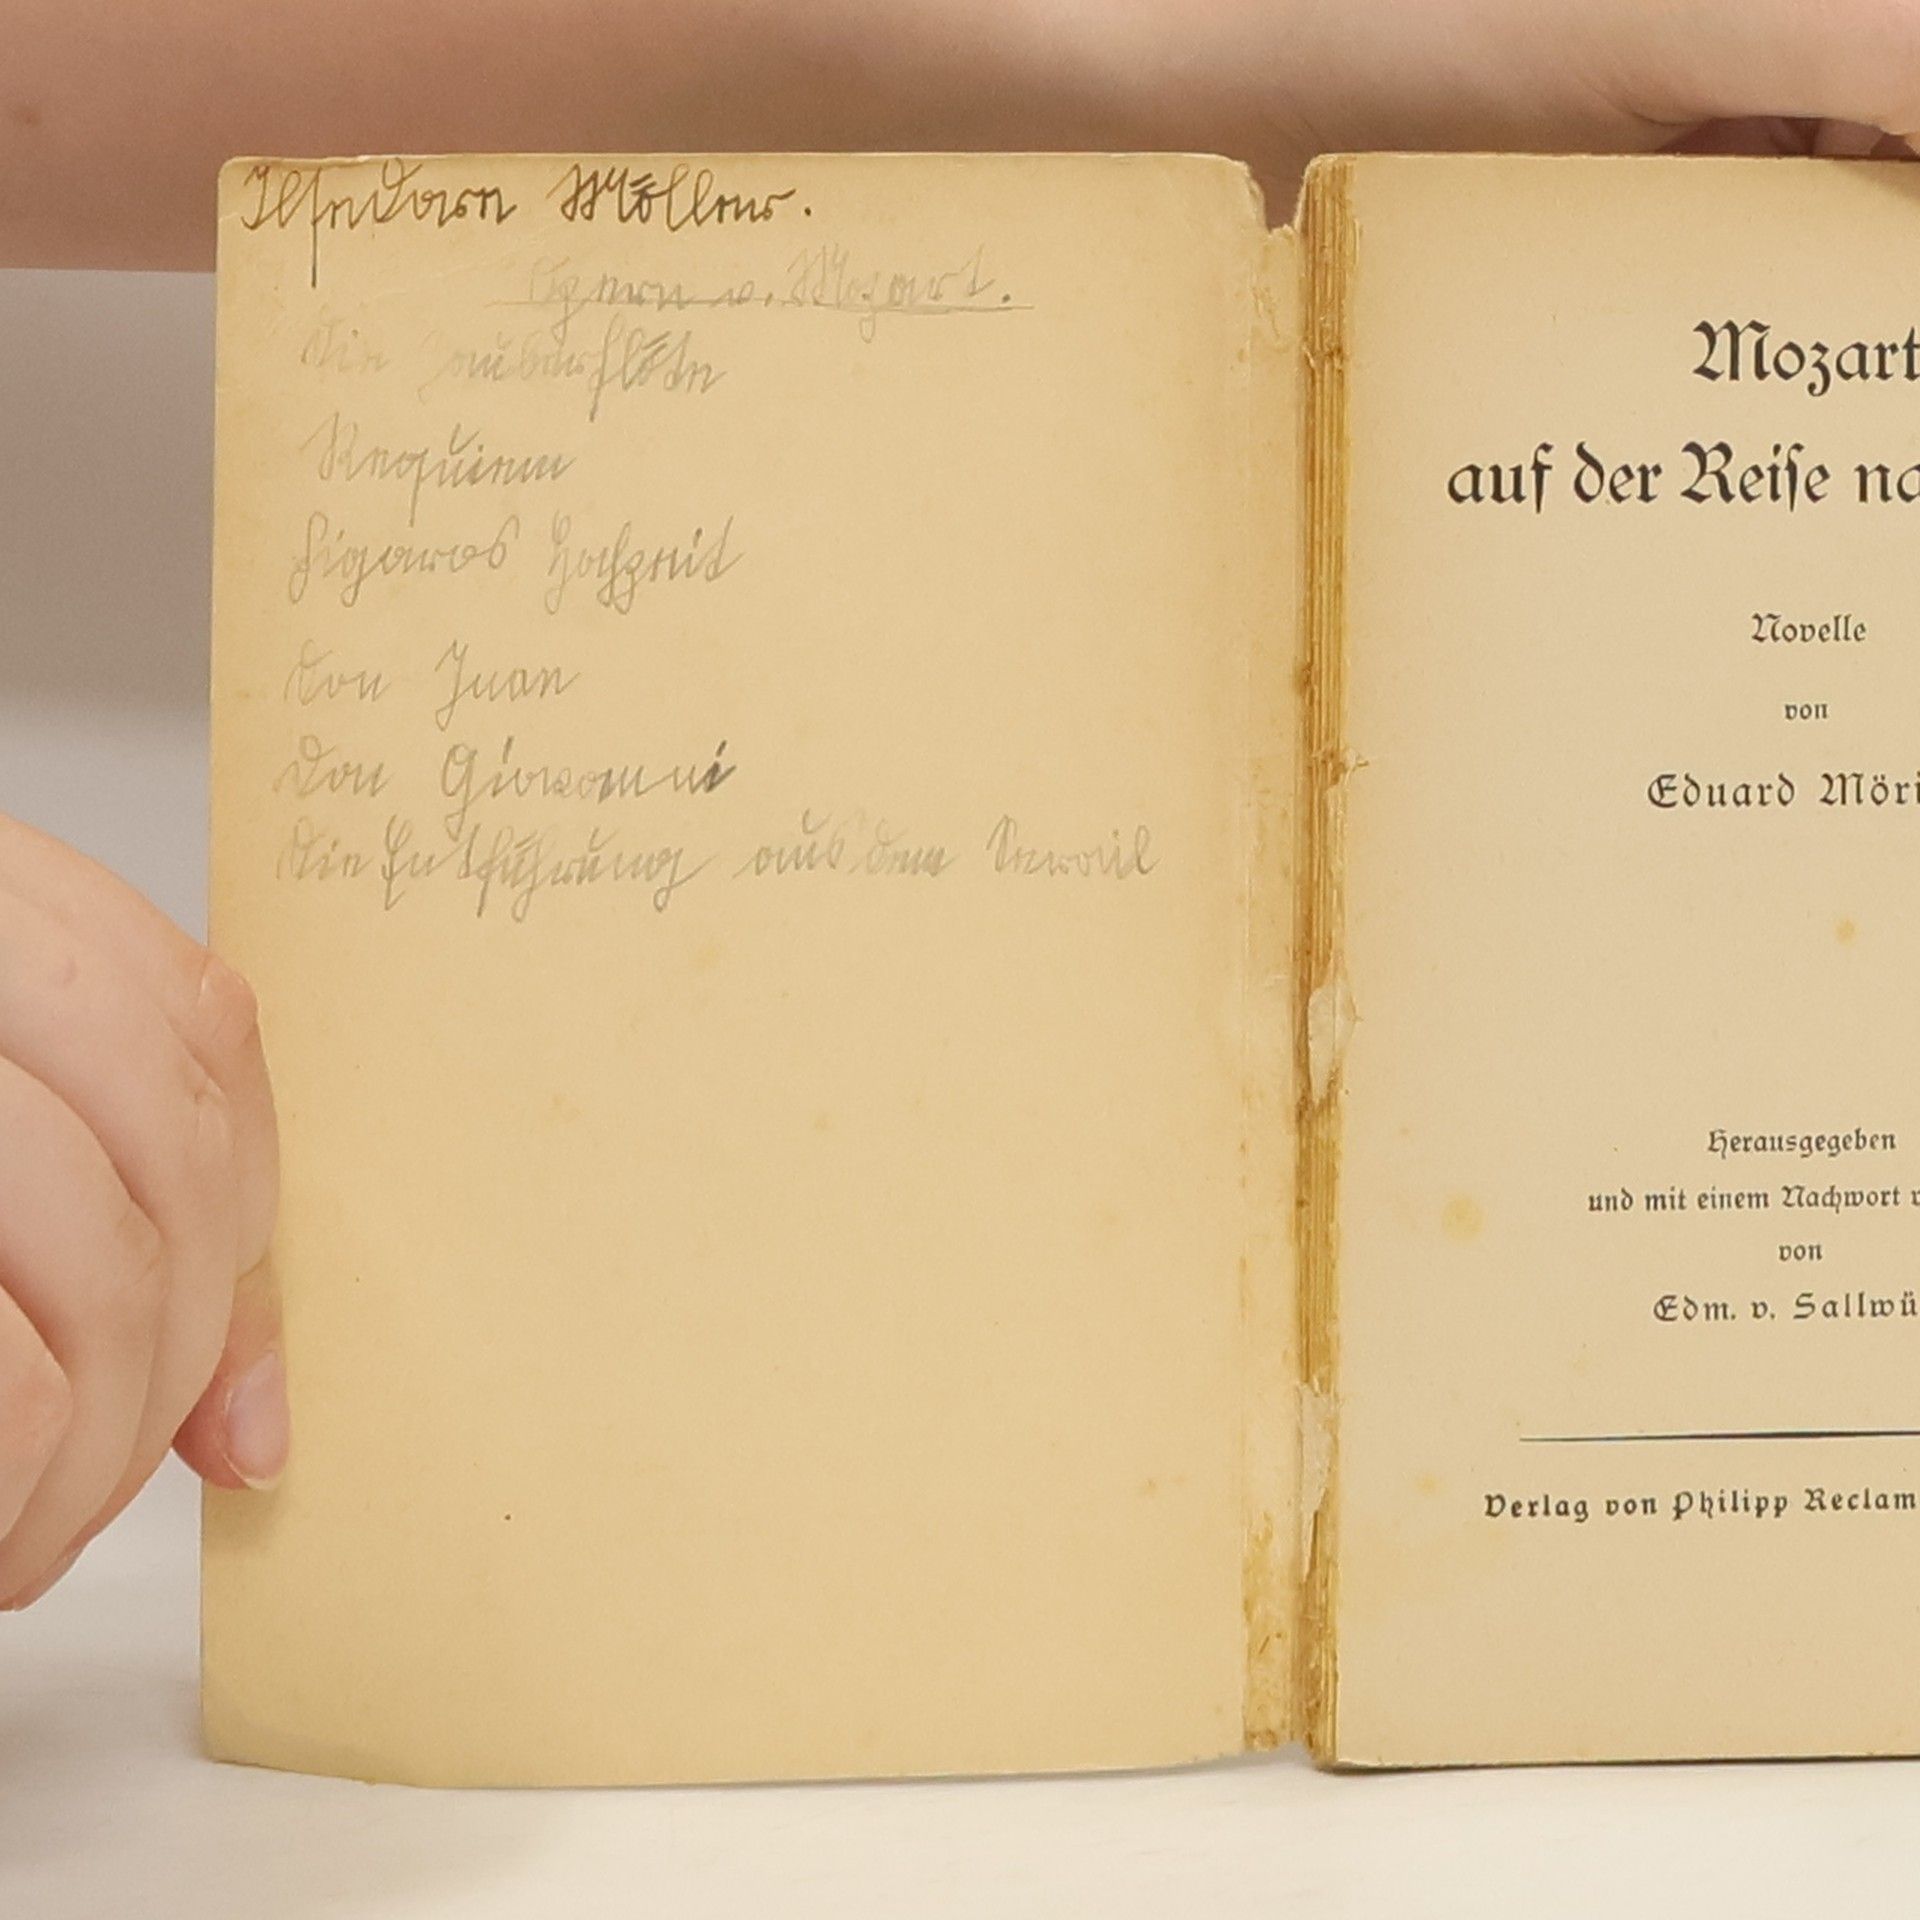 Ilsedore Möller.
Opern v. Mozart.
Die Zauberflöte
Requiem
Figaros Hochzeit
Don Juan
Don Giovanni
Die Entführung aus dem Serail
Mozart
auf der Reise na
Novelle
von
Eduard Möri
Herausgegeben
und mit einem Nachwort v
von
Edm. v. Sallwü
Verlag von Philipp Reclam